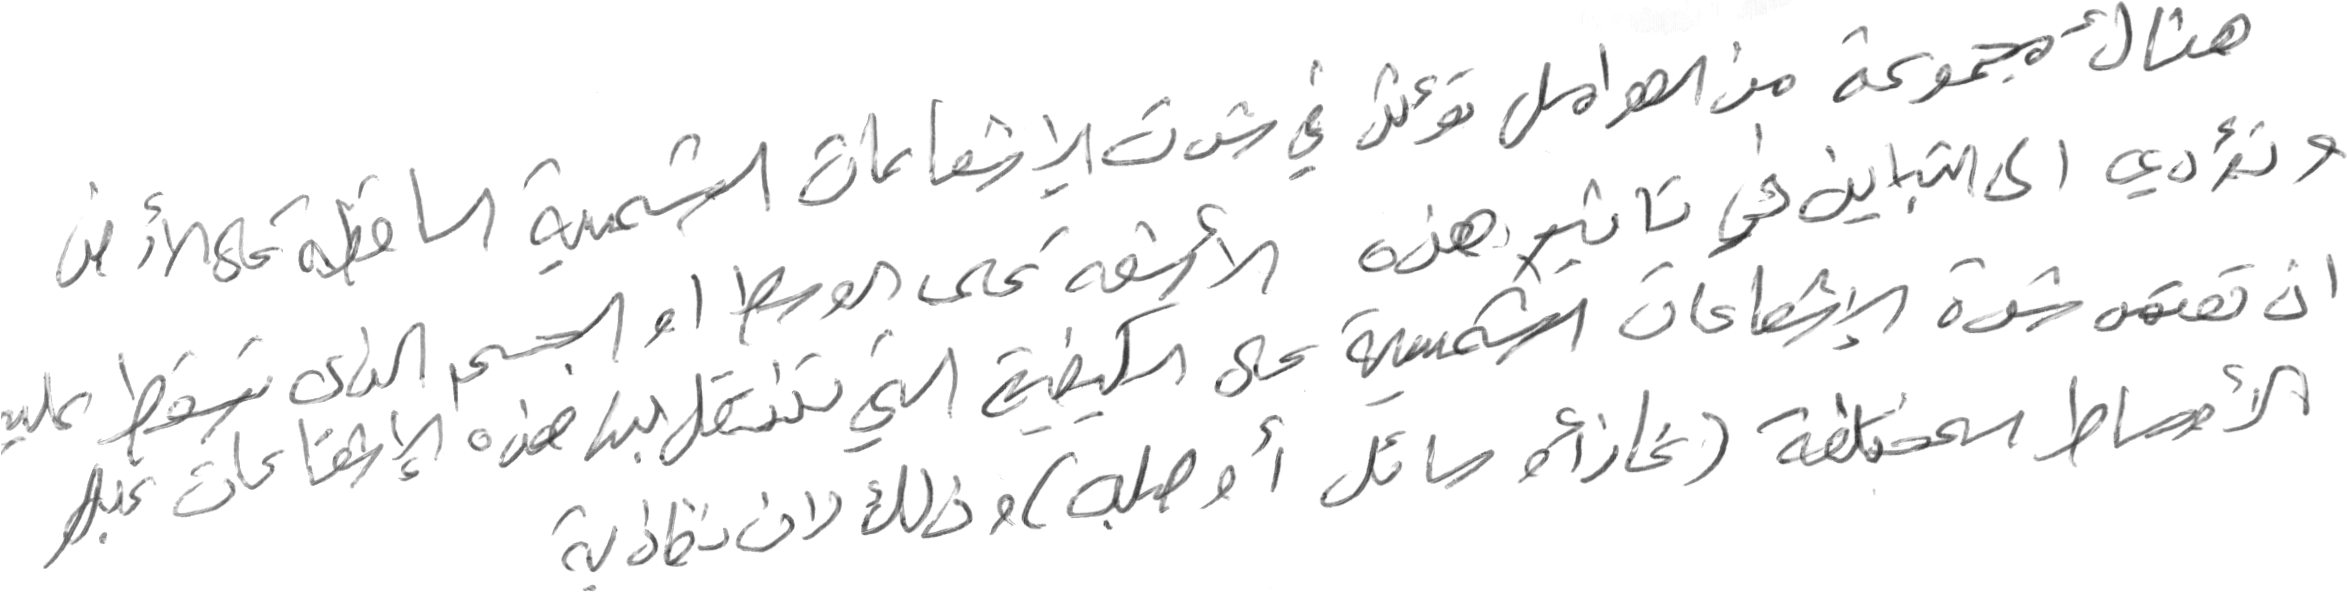 هناك مجموعة من العوامل تؤثر في شدت الإشعاعات الشمسية الساقطة على الأرض
و تؤدي الى التباين في تاثير هذه الأشعه على الوسط او الجسم الذي تسقط عليه
ان تعتمد شدة الإشعاعات الشمسية على الكيفية التي تنتقل بها هذه الإشعاعات عبر
الأوساط المختلفة (غاز أو سائل أو صلب) وذلك لان نفاذية